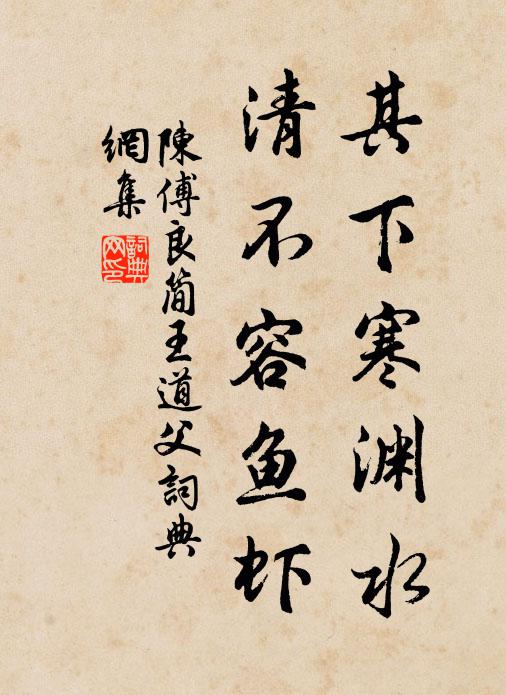 其下寒渊水
清不容鱼虾
陳傅良简王道父詞典
網集
詞典
网印